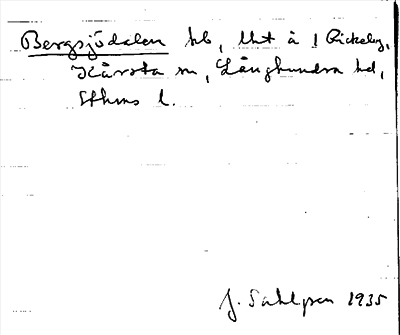 Bergsjödalen hb, Uht å 1 Rickeby,
Kårsta sn, Långhundra hd,
Sthms l.
J. Sahlgren 1935